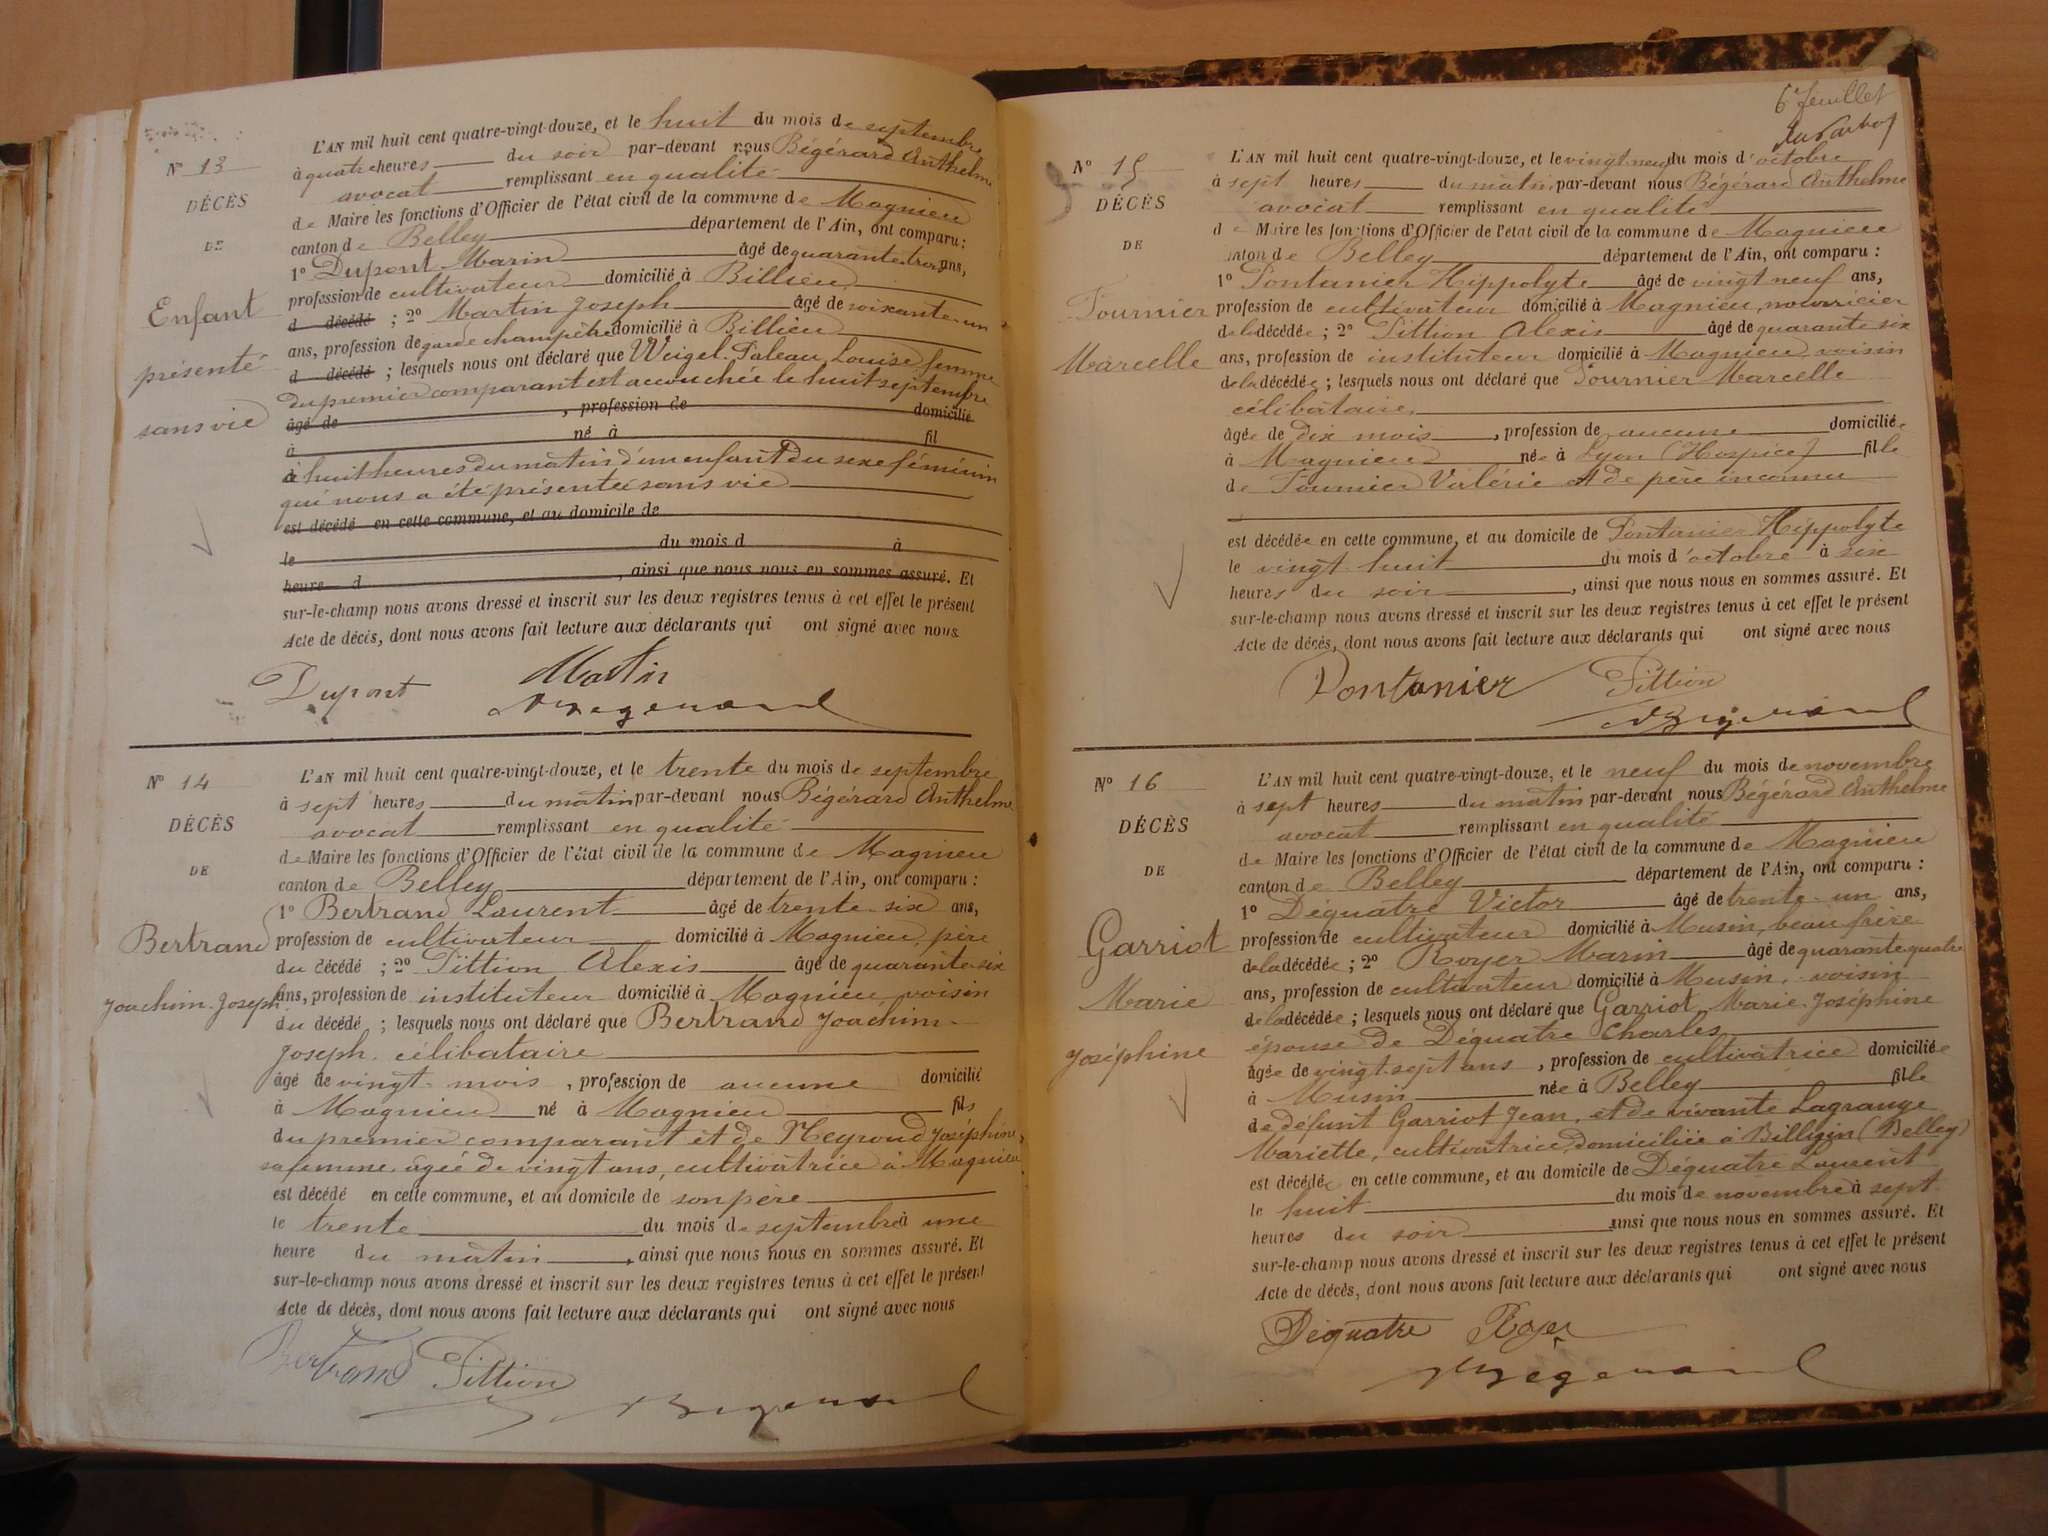 N° 13
DÉCÈS
DE
Enfant
présenté
sans vie
L'AN mil huit cent quatre-vingt-douze, et le huit du mois de septembre
à quatre heures du soir par-devant nous Bégérard Anthelme
avocat remplissant en qualité
de Maire les fonctions d'Officier de l'état civil de la commune de Magnieu
canton de Belley département de l'Ain, ont comparu :
1° Dupont Marin âgé de quarante trois ans,
profession de cultivateur domicilié à Billieu
d décédé ; 2° Martin Joseph âgé de soixante-un
ans, profession de garde champêtre domicilié à Billieu
d décédé ; lesquels nous ont déclaré que Weigel Paleau Louise femme
du premier comparant est accouchée le huit septembre
âgé de , profession de domicilié
à né à fil
à huit heures du matin d'un enfant du sexe féminin
qui nous a été présenté sans vie
est décédé en cette commune, et au domicile de
le du mois d à
heure d , ainsi que nous nous en sommes assuré. Et
sur-le-champ nous avons dressé et inscrit sur les deux registres tenus à cet effet le présent
Acte de décès, dont nous avons fait lecture aux déclarants qui ont signé avec nous.
Dupont Martin
Bégerard
N° 14
DÉCÈS
DE
Bertrand
Joachim-Joseph
L'AN mil huit cent quatre-vingt-douze, et le trente du mois de septembre
à sept heures du matin par-devant nous Bégérard Anthelme
avocat remplissant en qualité
de Maire les fonctions d'Officier de l'état civil de la commune de Magnieu
canton de Belley département de l'Ain, ont comparu :
1° Bertrand Laurent âgé de trente-six ans,
profession de cultivateur domicilié à Magnieu, père
du décédé ; 2° Pittion Alexis âgé de quarante-six
ans, profession de instituteur domicilié à Magnieu voisin
du décédé ; lesquels nous ont déclaré que Bertrand Joachim-
Joseph célibataire
âgé de vingt mois , profession de aucune domicilié
à Magnieu né à Magnieu fils
du premier comparant et de Meyroud Joséphine,
sa femme âgée de vingt ans, cultivatrice à Magnieu
est décédé en cette commune, et au domicile de son père
le trente du mois de septembre à une
heure du matin , ainsi que nous nous en sommes assuré. Et
sur-le-champ nous avons dressé et inscrit sur les deux registres tenus à cet effet le présent
Acte de décès, dont nous avons fait lecture aux déclarants qui ont signé avec nous
Bertrand Pittion
Bégerard
6e feuillet
N° 15
DÉCÈS
DE
Fournier
Marcelle
L'AN mil huit cent quatre-vingt-douze, et le vingt-neuf du mois d'octobre
à sept heures du matin par-devant nous Bégérard Anthelme
avocat remplissant en qualité
de Maire les fonctions d'Officier de l'état civil de la commune de Magnieu
canton de Belley département de l'Ain, ont comparu :
1° Pontanier Hippolyte âgé de vingt neuf ans,
profession de cultivateur domicilié à Magnieu, nourricier
de la décédée ; 2° Pittion Alexis âgé de quarante six
ans, profession de instituteur domicilié à Magnieu voisin
de la décédée ; lesquels nous ont déclaré que Fournier Marcelle
célibataire,
âgée de dix mois , profession de aucune domiciliée
à Magnieu née à Lyon (Hospice) fille
de Fournier Valérie et de père inconnu
est décédée en cette commune, et au domicile de Pontanier Hippolyte
le vingt-huit du mois d'octobre à six
heures du soir , ainsi que nous nous en sommes assuré. Et
sur-le-champ nous avons dressé et inscrit sur les deux registres tenus à cet effet le présent
Acte de décès, dont nous avons fait lecture aux déclarants qui ont signé avec nous
Pontanier Pittion
Bégerard
N° 16
DÉCÈS
DE
Garriot
Marie
Joséphine
L'AN mil huit cent quatre-vingt-douze, et le neuf du mois de novembre
à sept heures du matin par-devant nous Bégérard Anthelme
avocat remplissant en qualité
de Maire les fonctions d'Officier de l'état civil de la commune de Magnieu
canton de Belley département de l'Ain, ont comparu :
1° Déquatre Victor âgé de trente-un ans,
profession de cultivateur domicilié à Musin, beau frère
de la décédée ; 2° Royer Marin âgé de quarante quatre
ans, profession de cultivateur domicilié à Musin, voisin
de la décédée ; lesquels nous ont déclaré que Garriot Marie Joséphine
épouse de Déquatre Charles
âgée de vingt-sept ans , profession de cultivatrice domiciliée
à Musin née à Belley fille
de défunt Garriot Jean, et de vivante Lagrange
Mariette, cultivatrice domiciliée à Billigin (Belley)
est décédée en cette commune, et au domicile de Déquatre Laurent
le huit du mois de novembre à sept
heures du soir ainsi que nous nous en sommes assuré. Et
sur-le-champ nous avons dressé et inscrit sur les deux registres tenus à cet effet le présent
Acte de décès, dont nous avons fait lecture aux déclarants qui ont signé avec nous
Dequatre Royer
Bégerard